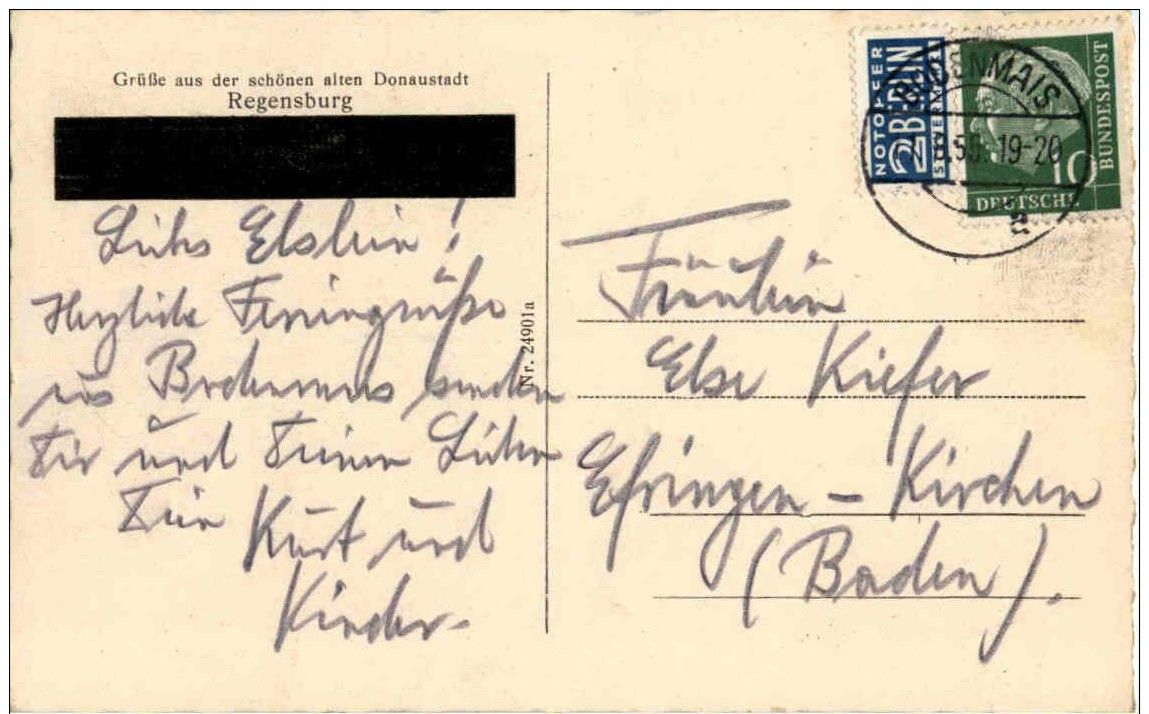 Grüße aus der schönen alten Donaustadt
Regensburg
Liebes Elslein!
Herzliche Feriengrüße
aus Bodenmais senden
Dir und Deinen Lieben
Dein Kurt und
Kinder.
Nr. 24901a
NOTOPFER
2 BERLIN
STEUERMARKE
DEUTSCHE
BUNDESPOST
10
BODENMAIS
19-20
Fräulein
Else Kiefer
Efringen - Kirchen
(Baden).